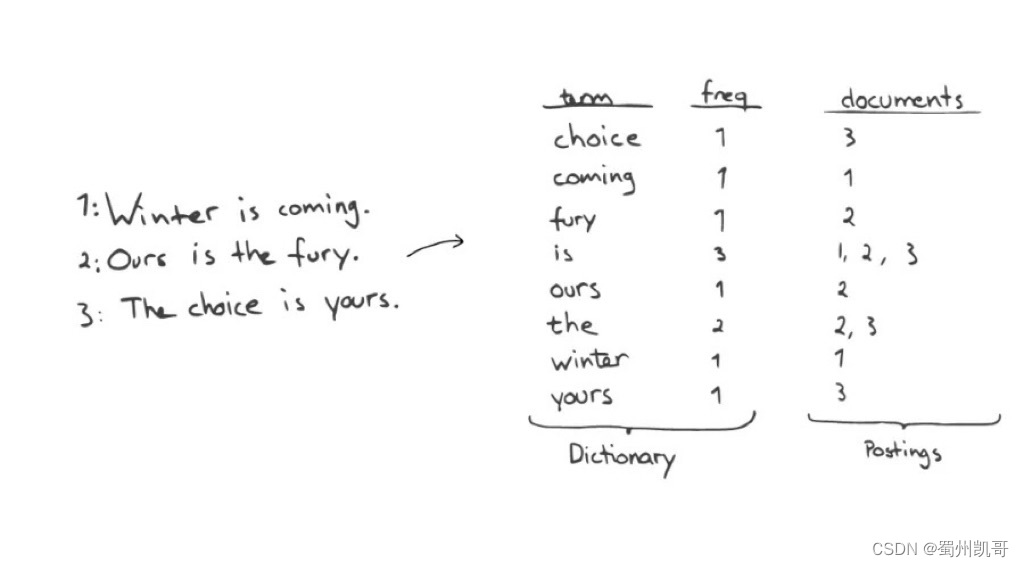 1: Winter is coming.
2: Ours is the fury.
3: The choice is yours.
term freq documents
choice 1 3
coming 1 1
fury 1 2
is 3 1, 2, 3
ours 1 2
the 2 2, 3
winter 1 1
yours 1 3
Dictionary Postings
CSDN @蜀州凯哥